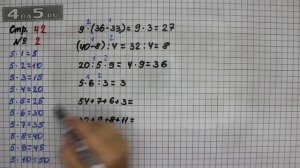 Стр. 42
№ 2
5·1=5
5·2=10
5·3=15
5·4=20
5·5=25
5·6=30
5·7=35
5·8=40
5·9=45
5·10=50
9·(36-33)=9·3=27
(40-8):4=32:4=8
20:5·9=4·9=36
5·6:3=3
54+7+6+3=
+8+11=